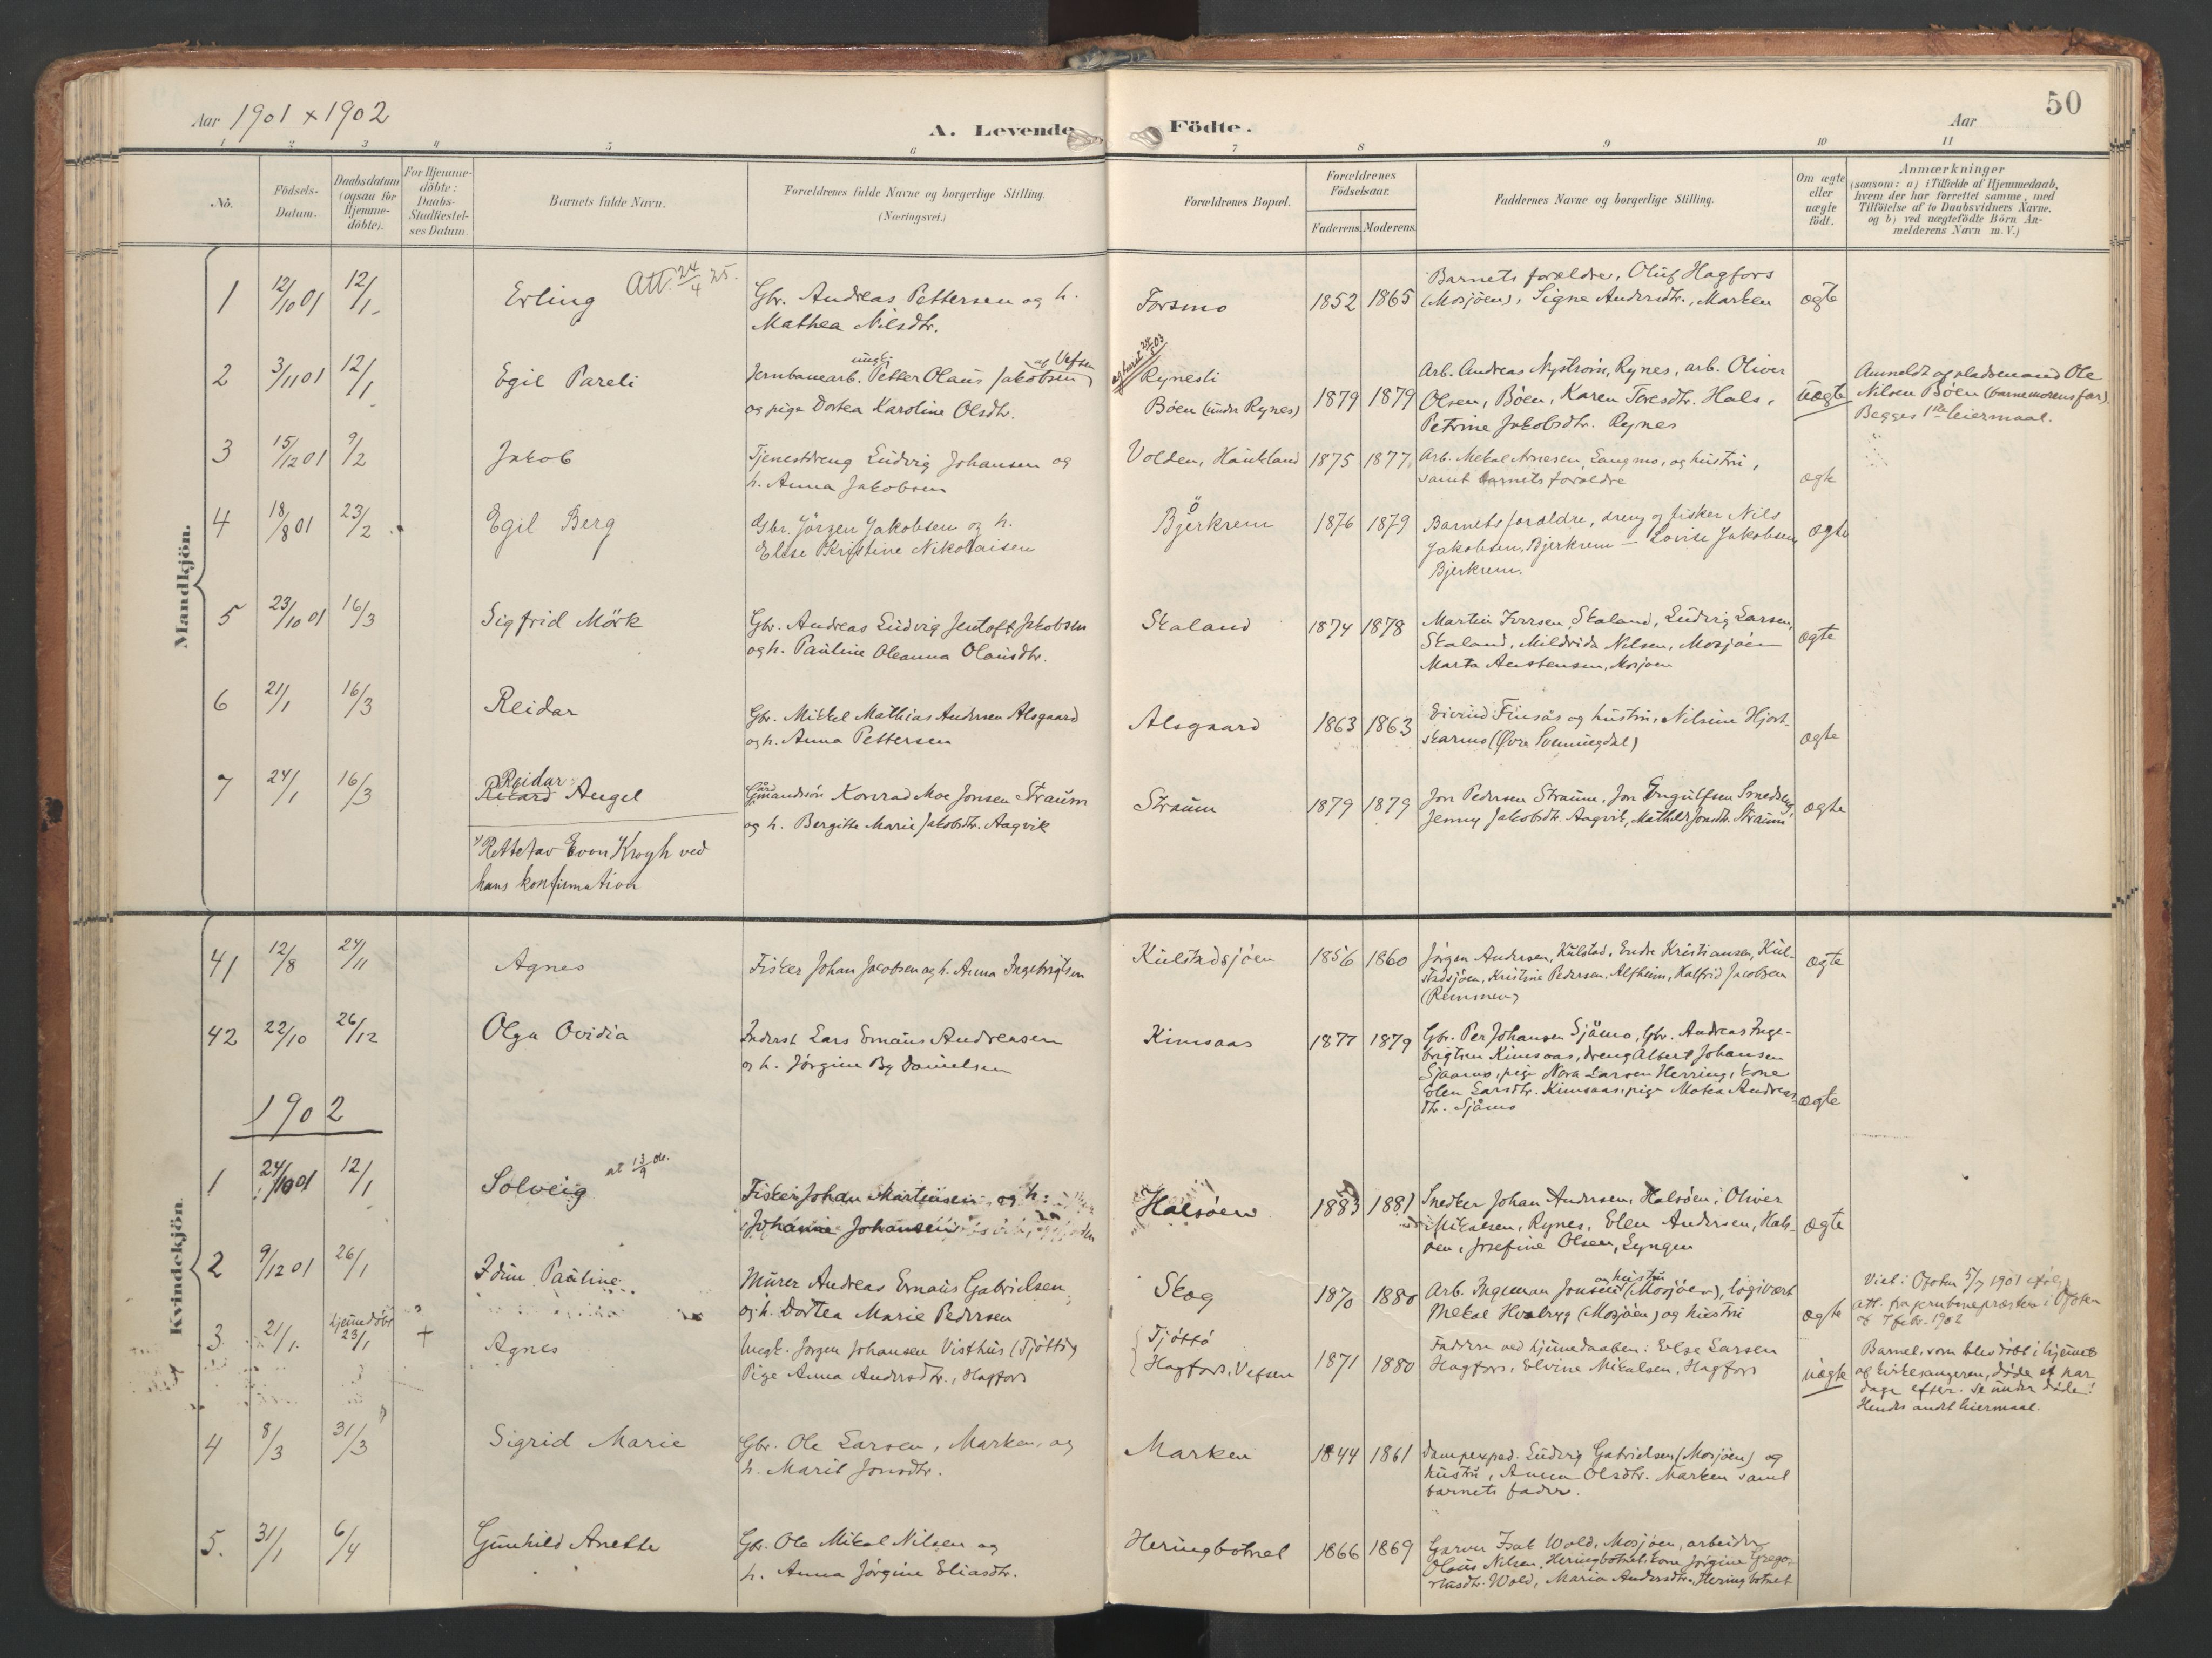 50
Aar 1901 x 1902
A. Levende Födte.
Aar
1 2 3 4 5 6 7 8 9 10 11
No.
Födsels-Datum.
Daabsdatum (ogsaa for Hjemme-döbte).
For Hjemme-döbte: Daabs-Stadfæstel-ses Datum.
Barnets fulde Navn.
Forældrenes fulde Navne og borgerlige Stilling.
(Næringsvei.)
Forældrenes Bopæl.
Forældrenes Födselsaar.
Faderens. Moderens.
Faddernes Navne og borgerlige Stilling.
Om ægte eller uægte födt.
Anmærkninger
(saasom: a) i Tilfælde af Hjemmedaab,
hvem der har forrettet samme, med
Tilföielse af to Daabsvidners Navne,
og b) ved uægtefödte Börn An-
melderens Navn m. V.)
Mandkjön.
1 12/10 01 12/1 Erling Att. 24/4 25.
Gbr. Andreas Pettersen og h.
Mathea Nilsdtr.
Forsmo 1852 1865
Barnets forældre, Oluf Hagfors
(Mosjöen), Signe Andersdtr., Marken
ægte
2 3/11 01 12/1 Egil Pareli
Jernbanearb. ungk. Petter Olaus Jakobsen af Vefsen
og pige Dortea Karoline Olsdtr.
Rynesli
Böen (under Rynes) 1879 1879
Arb. Andreas Nyström, Rynes, arb. Oliver
Olsen, Böen, Karen Toresdtr. Hals,
Petrine Jakobsdtr. Rynes
uægte
Anmeldt af pladsemand Ole
Nilsen Böen (barnemorens far).
Begges 1ste leiermaal.
3 15/12 01 9/2 Jakob
Tjenestdreng Ludvig Johansen og
h. Anna Jakobsen
Volden, Haukland 1875 1877
Arb. Mekal Arnesen, Langmo, og hustru,
samt barnets forældre
ægte
4 18/8 01 23/2 Egil Berg
Gbr. Jörgen Jakobsen og h.
Elise Kristine Nikolaisen
Bjerkrem 1876 1879
Barnets forældre, dreng og fisker Nils
Jakobsen, Bjerkrem — Lovise Jakobsen
Bjerkrem.
ægte
5 23/10 01 16/3 Sigfrid Mörk
Gbr. Andreas Ludvig Jentoft Jakobsen
og h. Pauline Oleanna Olausdtr.
Skaland 1874 1878
Martin Iversen, Skaland, Ludvig Larsen,
Skaland, Mildrida Nilsen, Mosjöen
Marta Austensen, Mosjöen
ægte
6 21/1 16/3 Reidar
Gbr. Mikkel Mathias Andersen Alsgaard
og h. Anna Pettersen
Alsgaard 1863 1863
Eivind Finsås og hustru, Nilsine Hjort-
skarmo (Øvre Svenningdal)
ægte
7 24/1 16/3 Reidar
Rikard Angel
Gårdmandssön Konrad Moe Jonsen Straum
og h. Bergitte Marie Jakobsdtr. Aagvik
Straum 1879 1879
Jon Pedersen Straum, Jon Ingulfsen Smedseng,
Jenny Jakobsdtr. Aagvik, Mathilde Jonsdtr. Straum
ægte
Rettet av Even Krogh ved
hans konfirmation
Kvindekjön
41 12/8 24/11 Agnes
Fisker Johan Jacobsen og h. Anna Ingebrigtsen
Kulstadsjöen 1856 1860
Jörgen Andersen, Kulstad, Endre Kristiansen, Kul-
stadsjöen, Kristine Pedersen, Alfheim, Halfrid Jacobsen
(Remmen)
ægte
42 22/10 26/12 Olga Ovidia
Inderst Lars Emaus Andreasen
og h. Jörgine By Danielsen
Kimsaas 1877 1879
Gbr. Per Johansen Sjåmo, Gbr. Andreas Inge-
brigtsen Kimsaas, dreng Albert Johansen
Sjaamo, pige Nora Larsen Herring, kone
Elen Larsdtr. Kimsaas, pige Motea Andreas-
dtr. Sjåmo
ægte
1902
1 24/10 01 12/1 Solveig at 13/9
Fisker Johan Martinsen og h:
Johanne Johansen
Halsöen 1883 1881
Snedker Johan Andersen, Halsöen, Oliver
Mikalsen, Rynes, Elen Andersen, Hals-
öen, Josefine Olsen, Lyngen
ægte
2 9/12 01 26/1 Idun Pauline
Murer Andreas Emaus Gabrielsen,
og h. Dortea Marie Pedersen
Skog 1870 1880
Arb. Ingeman Jonsen og hustru (Mosjöen), logivært
Mekal Hvalryg (Mosjöen) og hustru
ægte
Viet i Ofoten 5/7 1901 ifölge
att. fra jernbanepresten i Ofoten
af 7 febr. 1902
3 21/1 hjemmedöbt 23/1 + Agnes
Ungk. Jörgen Johansen Visthus (Tjöttö)
Pige Anna Andersdtr., Hagfors
Tjöttö
Hagfors, Vefsen 1871 1880
Faddere ved hjemmedaaben: Else Larsen
Hagfors, Elvine Mikalsen, Hagfors
uægte
Barnet, som blev döbt i hjemmet
af kirkesangeren, döde et par
dage efter. Se under döde!
Hendes andet leiermaal.
4 8/3 31/3 Sigrid Marie
Gbr. Ole Larsen, Marken, og
h. Marit Jonsdtr.
Marken 1844 1861
Dampexped. Ludvig Gabrielsen (Mosjöen) og
hustru, Anna Olsdtr. Marken samt
barnets fader.
5. 31/1 6/4 Gunhild Anette
Gbr. Ole Mikal Nilsen og
h. Anna Jörgine Eliasdtr.
Heringbotnet 1866 1869
Garver Isak Wold, Mosjöen, arbeider
Olaus Nilsen, Heringbotnet, kone Jörgine Grego-
riusdtr. Wold, Maria Andersdtr. Heringbotnet